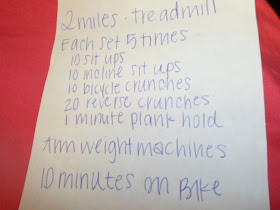 2 miles · treadmill
Each set 5 times
10 sit ups
10 incline sit ups
10 bicycle crunches
20 reverse crunches
1 minute plank hold
Arm weight machines
10 minutes on Bike